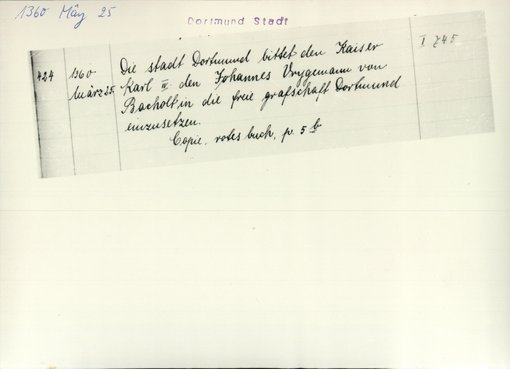 1360 März 25
Dortmund Stadt
424 1360 März 25.
Die stadt Dortmund bittet den Kaiser
Karl IV. den Johannes Vrygemann von
Bacholt in die freie grafschaft Dortmund
einzusetzen.
Copie, rotes buch, p. 5 b
I 745